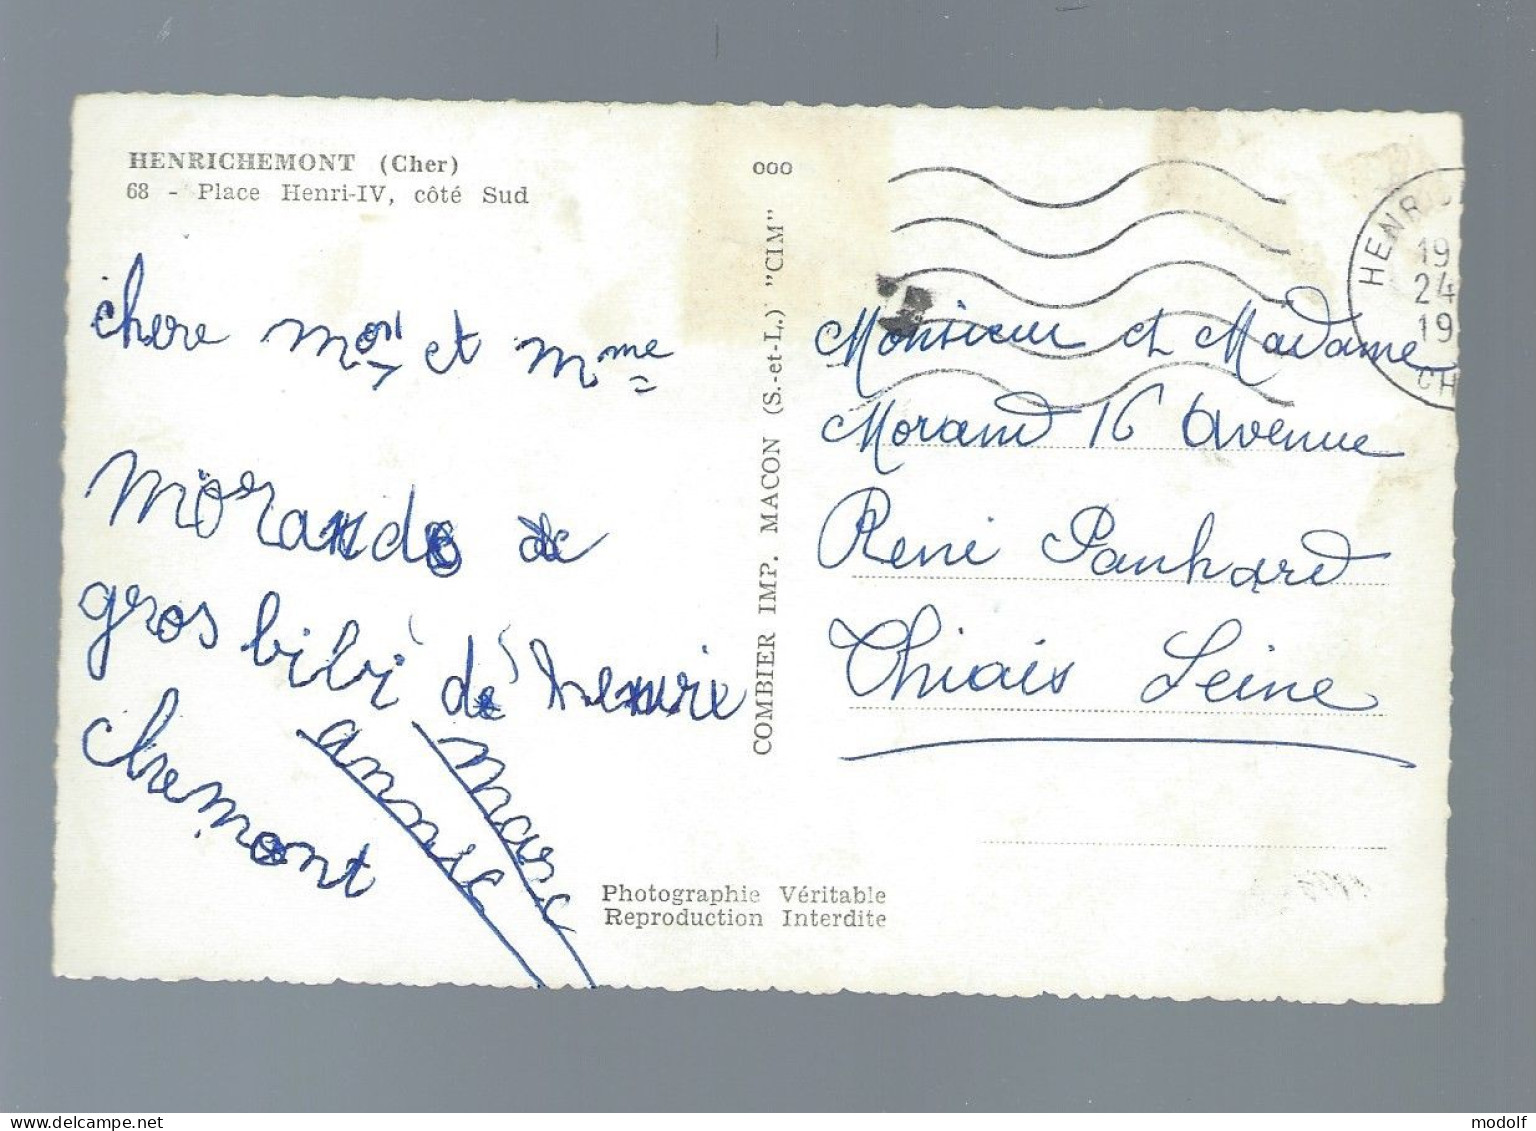 HENRICHEMONT (Cher)
68 - Place Henri-IV, côté Sud
chere mon et mme
morande de
gros bibi de henrie
chemont
annie
marc
ooo
COMBIER IMP. MACON (S.-et-L.) "CIM"
Photographie Véritable
Reproduction Interdite
HENRIC
19
24
19
CH
Monsieur et Madame
Morand 16 Avenue
René Panhard
Thiais Seine
delcampe.net
modolf